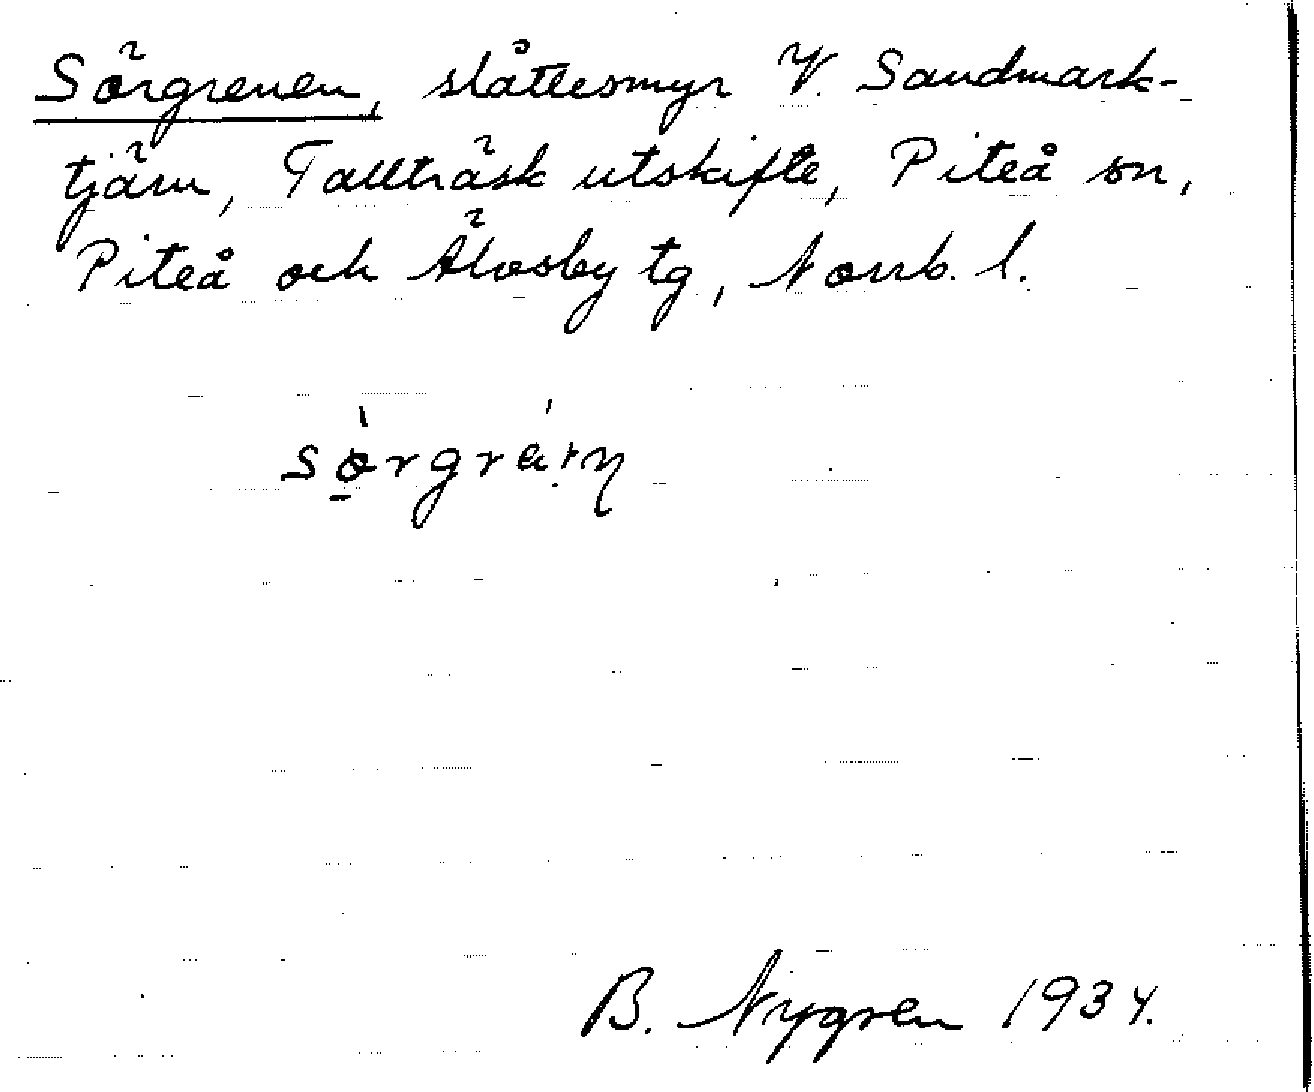 Sörgrenen, slåttesmyr V. Sandmark-
tjärn, Tallträsk utskifte, Piteå sn,
Piteå och Älvsby tg, Norrb. l.
B. Nygren 1934.